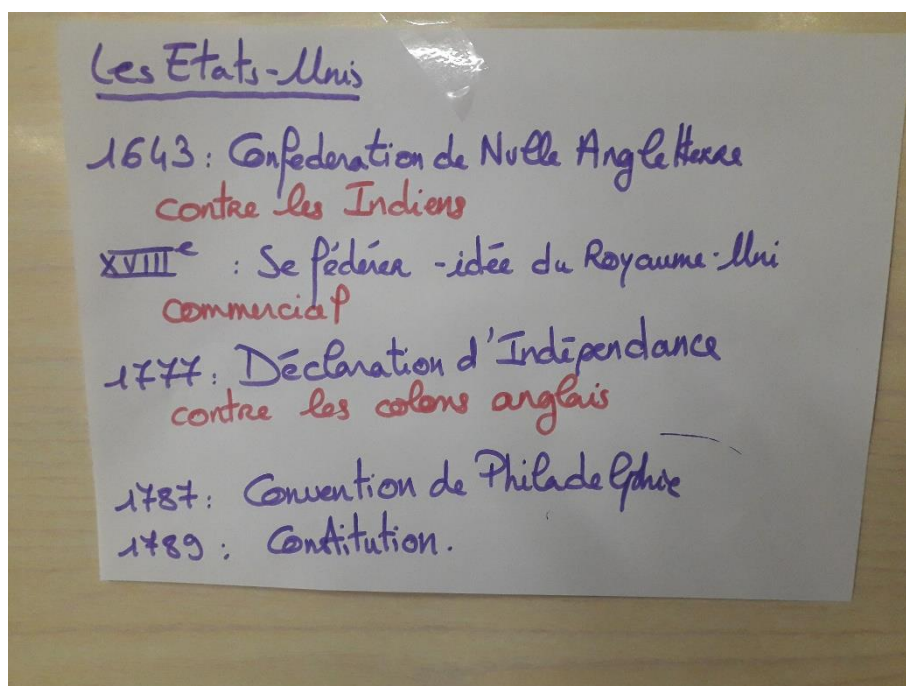 Les Etats-Unis
1643 : Confederation de Nvlle Angleterre
contre les Indiens
XVIIIe : Se fédérer - idée du Royaume-Uni
commercial
1777 : Déclaration d'Indépendance
contre les colons anglais
1787 : Convention de Philadelphie
1789 : Constitution.